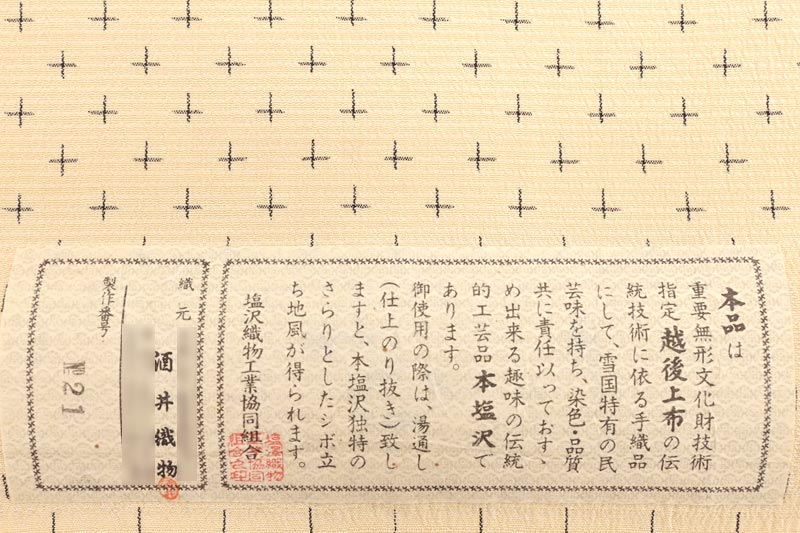 本品は
重要無形文化財技術
指定越後上布の伝
統技術に依る手織品
にして、雪国特有の民
芸味を持ち、染色・品質
共に責任以っておすゝ
め出来る趣味の伝統
的工芸品本塩沢で
あります。
御使用の際は、湯通し
(仕上のり抜き)致し
ますと、本塩沢独特の
さらりとしたシボ立
ち地風が得られます。
塩沢織物工業協同組合
織元
酒井織物
製作番号
№21